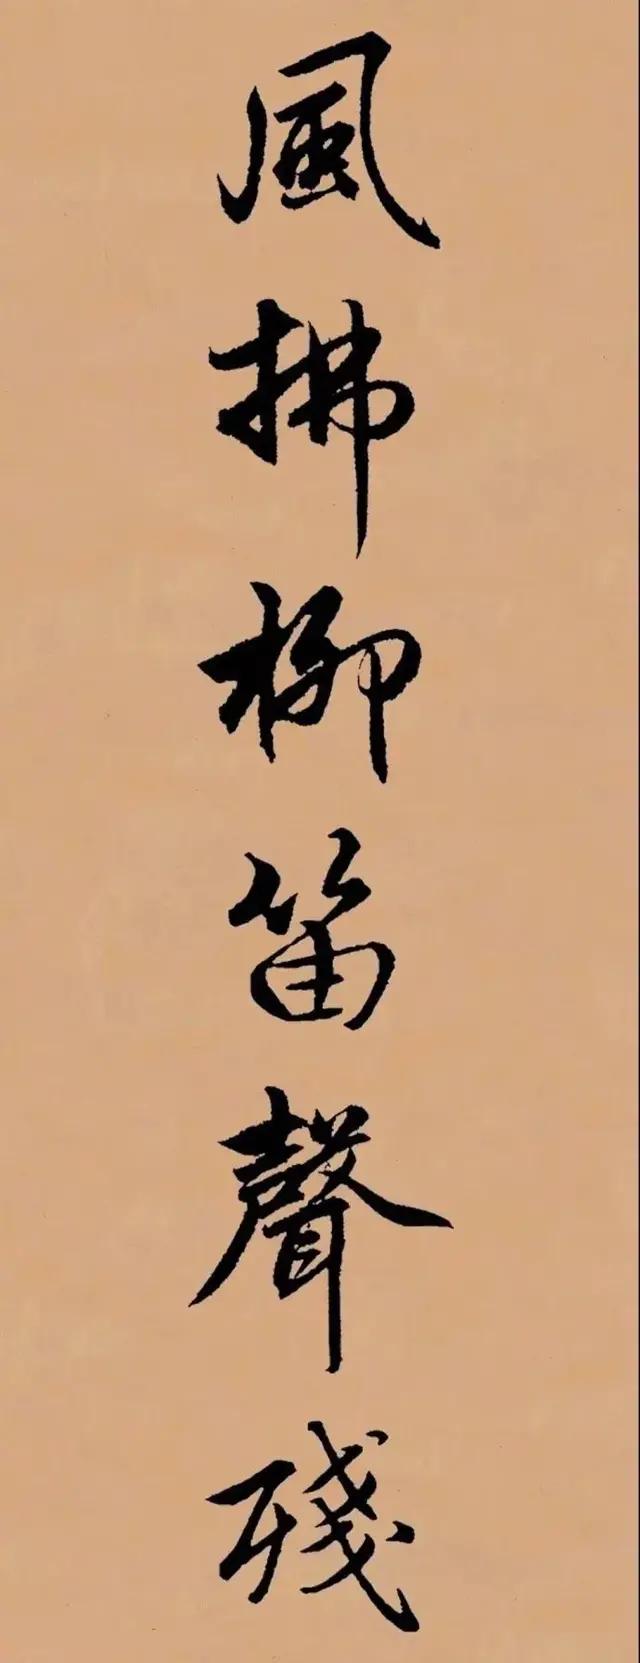 風拂柳笛聲殘